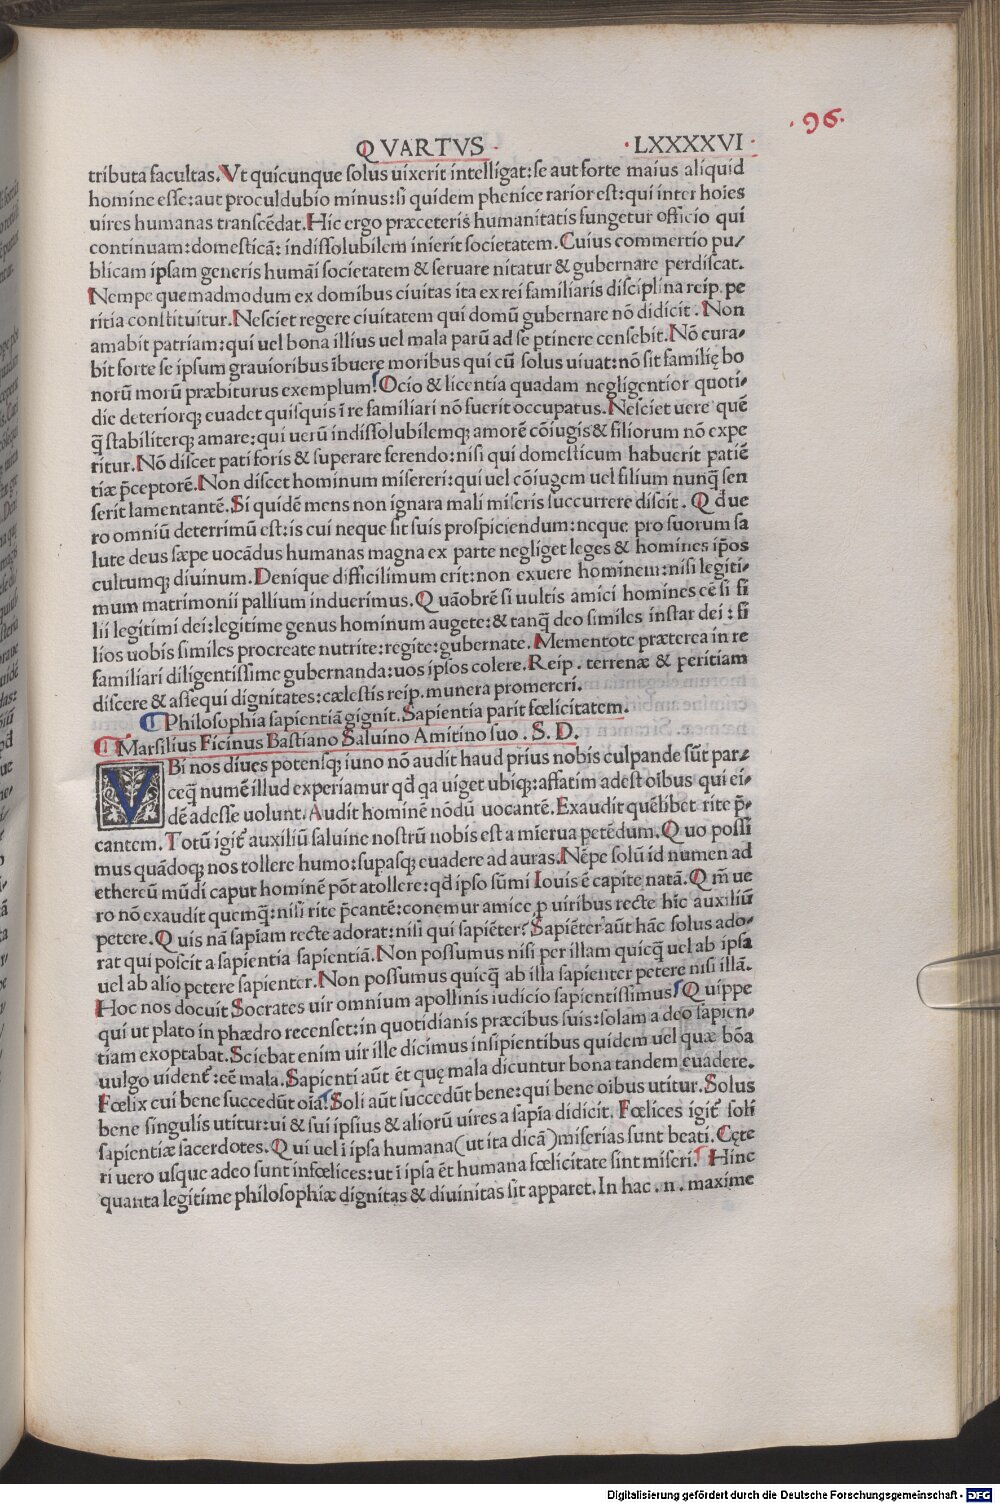 ·96·
QVARTVS · ·LXXXXVI·
tributa facultas. Vt quicunque solus uixerit intelligat: se aut forte maius aliquid
homine esse: aut proculdubio minus: si quidem phenice rarior est: qui inter hoies
uires humanas transcēdat. Hic ergo præceteris humanitatis fungetur officio qui
continuam: domesticā: indissolubilem inierit societatem. Cuius commertio pu/
blicam ipsam generis humāi societatem & seruare nitatur & gubernare perdiscat.
Nempe quemadmodum ex domibus ciuitas ita ex rei familiaris disciplina reip. pe
ritia constituitur. Nesciet regere ciuitatem qui domū gubernare nō didicit. Non
amabit patriam: qui uel bona illius uel mala parū ad se ptinere censebit. Nō cura/
bit forte se ipsum grauioribus ībuere moribus qui cū solus uiuat: nō sit familię bo
norū morū præbiturus exemplum. Ocio & licentia quadam negligentior quoti/
die deteriorq; euadet quisquis ī re familiari nō fuerit occupatus. Nesciet uere quē
q̄ stabiliterq; amare: qui uerū indissolubilemq; amorē cōiugis & filiorum nō expe
ritur. Nō discet pati foris & superare ferendo: nisi qui domesticum habuerit patiē
tiæ p̄ceptorē. Non discet hominum misereri: qui uel cōiugem uel filium nunq̄ sen
serit lamentantē. Si quidē mens non ignara mali miseris succurrere discit. Qd ue
ro omniū deterrimū est: is cui neque sit suis prospiciendum: neque pro suorum sa
lute deus sæpe uocādus humanas magna ex parte negliget leges & homines ip̄os
cultumq; diuinum. Denique difficilimum erit: non exuere hominem: nisi legiti/
mum matrimonii pallium induerimus. Quāobrē si uultis amici homines eē si fi
lii legitimi dei: legitime genus hominum augete: & tanq̄ deo similes instar dei: fi
lios uobis similes procreate nutrite: regite: gubernate. Mementote præterea in re
familiari diligentissime gubernanda: uos ipsos colere. Reip. terrenæ & peritiam
discere & assequi dignitates: cælestis reip. munera promereri.
¶ Philosophia sapientiā gignit. Sapientia parit fœlicitatem.
¶ Marsilius Ficinus Bastiano Saluino Amitino suo. S. D.
VBi nos diues potensq; iuno nō audit haud prius nobis culpande sūt par/
ceq̄ numē illud experiamur qd qa uiget ubiq; : affatim adest oibus qui ei/
dē adesse uolunt. Audit hominē nōdū uocantē. Exaudit quēlibet rite p̄/
cantem. Totū igit̄ auxiliū saluine nostrū nobis est a mierua petēdum. Quo possi
mus quādoq; nos tollere humo: supasq; euadere ad auras. Nēpe solū id numen ad
ethereū mūdi caput hominē pōt atollere: qd ipso sūmi Iouis ē capite natā. Qm̄ ue
ro nō exaudit quemq̄: nisi rite p̄cantē: conemur amice p uiribus recte hic auxiliū
petere. Quis nā sapiam recte adorat: nisi qui sapiēter? Sapiēter aūt hāc solus ado/
rat qui poscit a sapientia sapientiā. Non possumus nisi per illam quicq̄ uel ab ipsa
uel ab alio petere sapienter. Non possumus quicq̄ ab illa sapienter petere nisi illā.
Hoc nos docuit Socrates uir omnium apollinis iudicio sapientissimus. Quippe
qui ut plato in phædro recenset: in quotidianis præcibus suis: solam a deo sapien/
tiam exoptabat. Sciebat enim uir ille dicimus insipientibus quidem uel quæ bōa
uulgo uident̄: eē mala. Sapienti aūt ēt quę mala dicuntur bona tandem euadere.
Fœlix cui bene succedūt oīa. Soli aūt succedūt bene: qui bene oibus utitur. Solus
bene singulis utitur: ui & sui ipsius & aliorū uires a sapīa didicit. Fœlices igit̄ soli
sapientiæ sacerdotes. Qui uel ī ipsa humana (ut ita dicā) miserias sunt beati. Cęte
ri uero usque adeo sunt infœlices: ut ī ipsa ēt humana fœlicitate sint miseri. Hinc
quanta legitime philosophiæ dignitas & diuinitas sit apparet. In hac .n. maxime
Digitalisierung gefördert durch die Deutsche Forschungsgemeinschaft - DFG